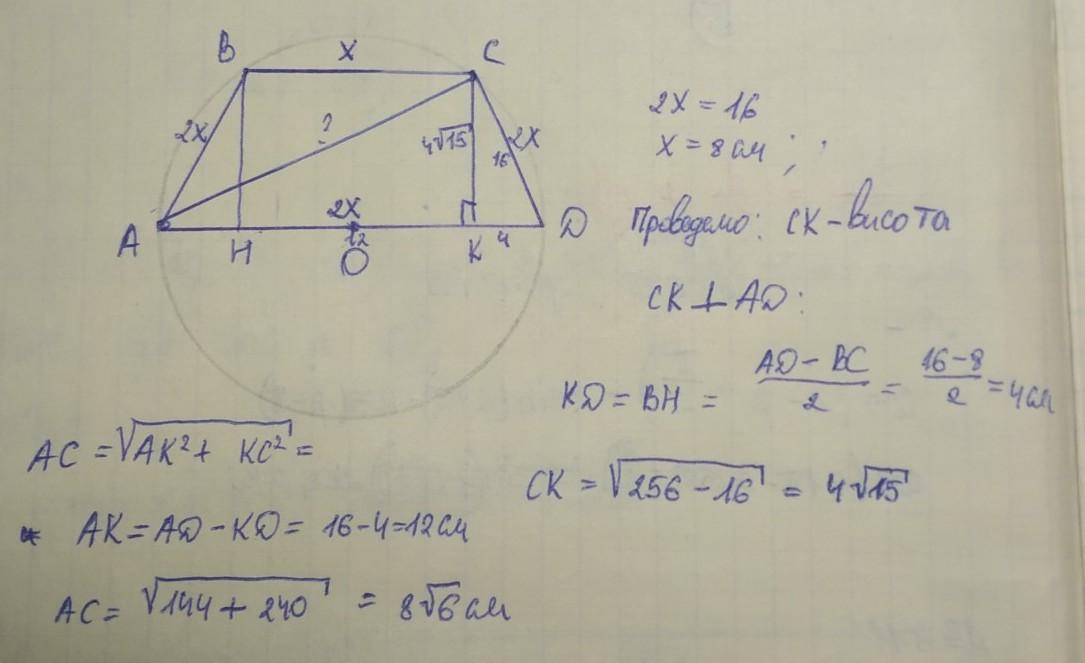 B x C
2x ? 4√15 2x
16
2x
A H 12 K 4 D
O
2x = 16
x = 8 см ;
Проведемо: CK - висота
CK ⊥ AD:
KD = BH = (AD - BC)/2 = (16 - 8)/2 = 4 см
AC = √(AK² + KC²) =
CK = √(256 - 16) = 4√15
AK = AD - KD = 16 - 4 = 12 см
AC = √(144 + 240) = 8√6 см